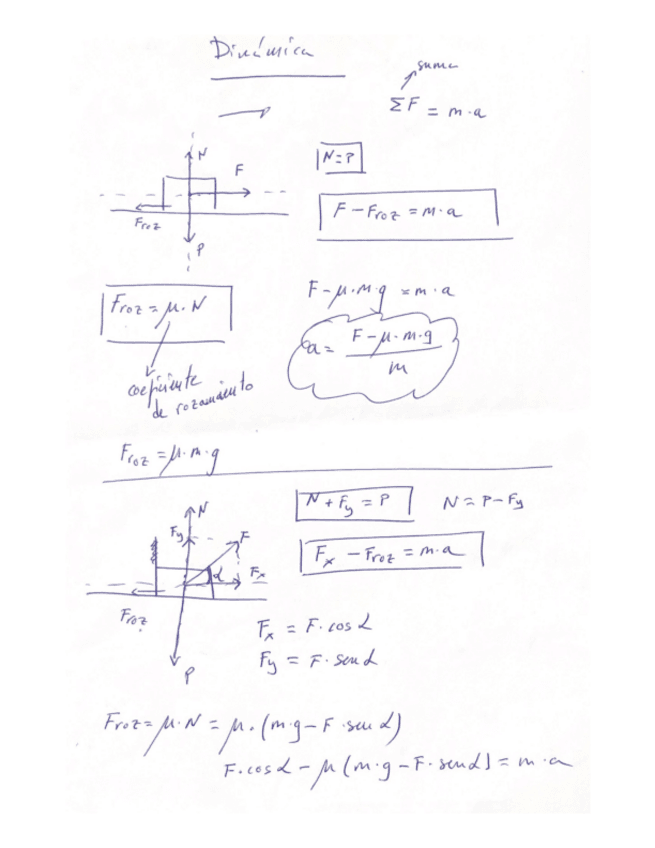 Dinámica
suma
ΣF = m·a
N
F
Froz
P
N=P
F - Froz = m·a
Froz = μ·N
coeficiente
de rozamiento
F - μ·m·g = m·a
a = (F - μ·m·g) / m
Froz = μ·m·g
N
Fy
F
α
Fx
Froz
P
N + Fy = P
N = P - Fy
Fx - Froz = m·a
Fx = F·cos α
Fy = F·sen α
Froz = μ·N = μ·(m·g - F·sen α)
F·cos α - μ(m·g - F·sen α) = m·a